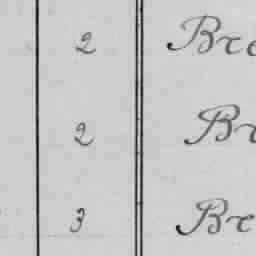 2 Bre
2 Br
3 Bre